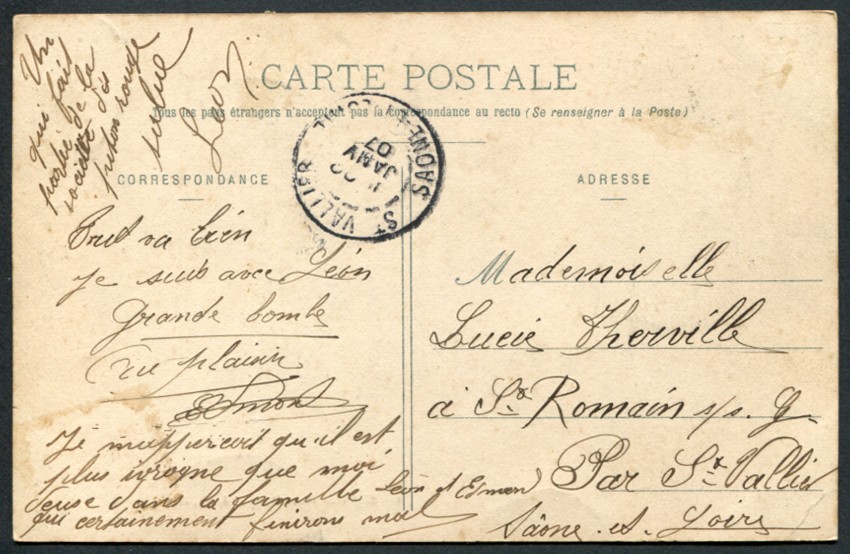 Un
qui fait
partie de la
société des
pitons rouge
Léon
CARTE POSTALE
Tous les pays étrangers n'acceptent pas la correspondance au recto (Se renseigner à la Poste)
CORRESPONDANCE
ADRESSE
ST VALLIER SAONE-ET-LOIRE
JANV
07
Tout va bien
Je suis avec Léon
Grande bombe
au plaisir
Edmond
Je m'appercoit qu'il est
plus ivrogne que moi
deuse dans la famille Léon et Edmond
qui certainement finirons mal
Mademoiselle
Lucie Therville
à St Romain s/s. G-
Par St Vallier
Sâone et Loire